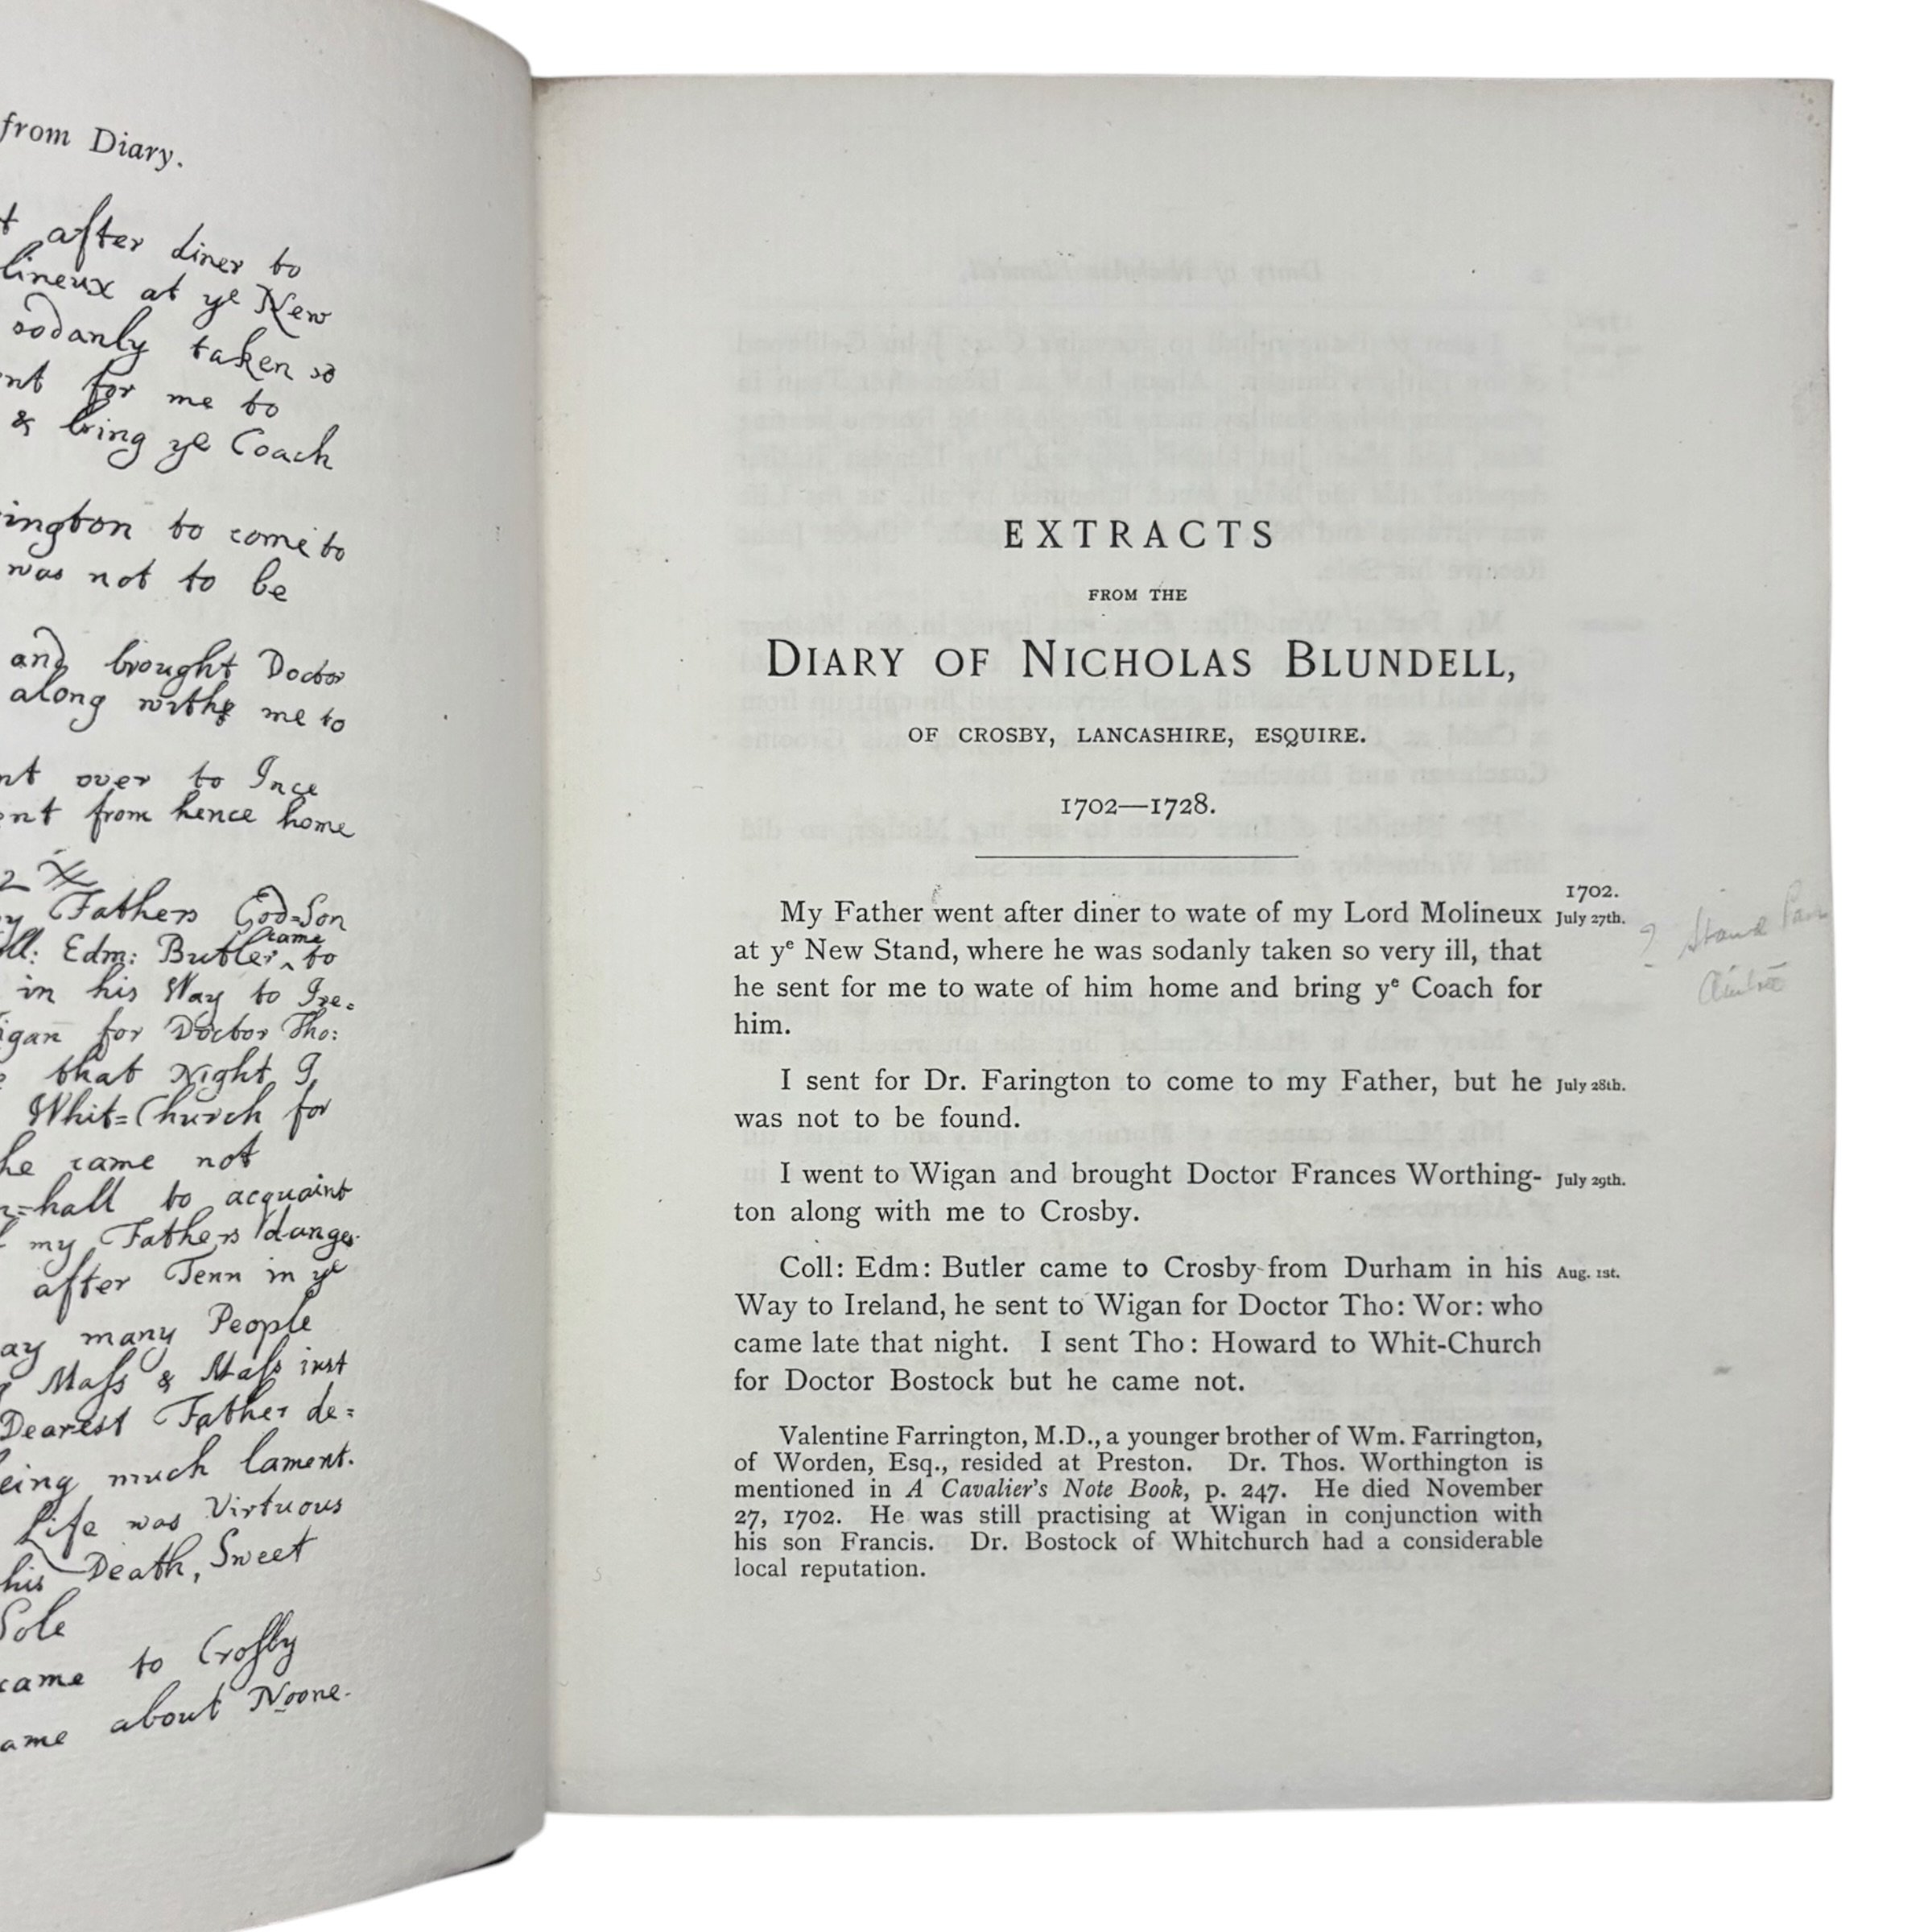 from Diary.
after diner to
lineux at yᵉ New
sodanly taken so
for me to
& bring yᵉ Coach
ington to come to
was not to be
and brought Doctor
along withe me to
over to Ince
from hence home
2
Fathers God=Son
Edm: Butler came to
in his Way to Ire=
for Doctor Tho:
that Night I
Whit=Church for
he came not
hall to acquaint
my Fathers dange
after Tenn in yᵉ
many People
Mass & Mass just
Dearest Father de=
eing much lament.
Life was Virtuous
his Death, Sweet
Sole
came to Crosby
ame about Noone.
EXTRACTS
FROM THE
DIARY OF NICHOLAS BLUNDELL,
OF CROSBY, LANCASHIRE, ESQUIRE.
1702—1728.
1702.
My Father went after diner to wate of my Lord Molineux July 27th.
at yᵉ New Stand, where he was sodanly taken so very ill, that
he sent for me to wate of him home and bring yᵉ Coach for
him.
? Stand
I sent for Dr. Farington to come to my Father, but he July 28th.
was not to be found.
I went to Wigan and brought Doctor Frances Worthing- July 29th.
ton along with me to Crosby.
Coll: Edm: Butler came to Crosby from Durham in his Aug. 1st.
Way to Ireland, he sent to Wigan for Doctor Tho: Wor: who
came late that night. I sent Tho: Howard to Whit-Church
for Doctor Bostock but he came not.
Valentine Farrington, M.D., a younger brother of Wm. Farrington,
of Worden, Esq., resided at Preston. Dr. Thos. Worthington is
mentioned in A Cavalier's Note Book, p. 247. He died November
27, 1702. He was still practising at Wigan in conjunction with
his son Francis. Dr. Bostock of Whitchurch had a considerable
local reputation.